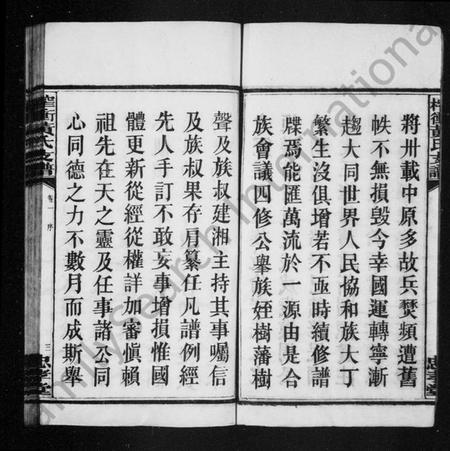 將卅載中原多故兵焚頻遭舊
帙不無損毀今幸國運轉寧漸
趨大同世界人民協和族大丁
繁生沒俱增若不亟時續修譜
牒焉能匯萬流於一源由是合
族會議四修公舉族姪樹藩樹
聲及族叔建湘主持其事囑信
及族叔果存肩纂任凡譜例經
先人手訂不敢妄事增損惟國
體更新從經從權詳加審慎賴
祖先在天之靈及任事諸公同
心同德之力不數月而成斯舉
衡黃氏支譜
卷一 序
三
忠孝堂
FamilySearch International